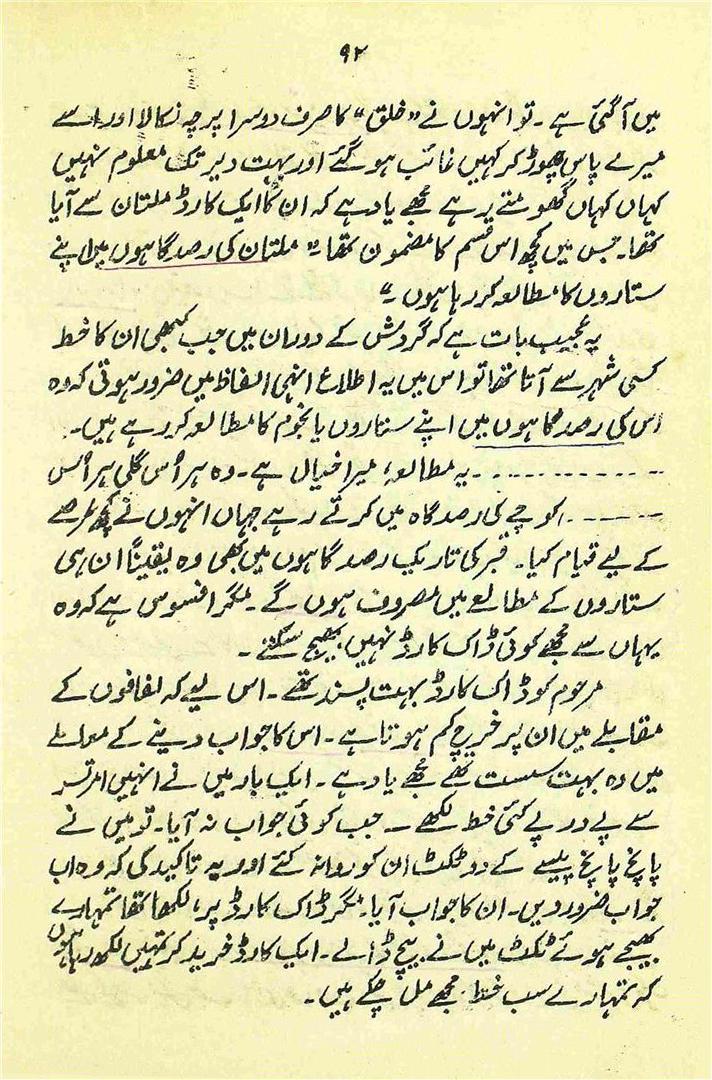 ۹۲
میں آ گئی ہے۔ تو انہوں نے "خلق" کا صرف دوسرا پرچہ نکالا اور اسے
میرے پاس چھوڑ کر کہیں غائب ہو گئے اور بہت دیر تک معلوم نہیں
کہاں کہاں گھومتے پھرتے رہے مجھے یاد ہے کہ ان کا ایک کارڈ ملتان سے آیا
تھا۔ جس میں کچھ اس قسم کا مضمون تھا۔ "ملتان کی رصد گاہوں میں اپنے
ستاروں کا مطالعہ کر رہا ہوں۔"
یہ عجیب بات ہے کہ گردش کے دوران میں جب کبھی ان کا خط
کسی شہر سے آتا تھا تو اس میں یہ اطلاع انہی الفاظ میں ضرور ہوتی کہ وہ
اس کی رصد گاہوں میں اپنے ستاروں یا نجوم کا مطالعہ کر رہے ہیں۔
۔۔۔۔۔۔۔۔۔۔۔۔ یہ مطالعہ، میرا خیال ہے۔ وہ ہر اُس گلی ہر اُس
۔۔۔۔۔۔ کوچے کی رصد گاہ میں کرتے رہے جہاں انہوں نے کچھ عرصے
کے لیے قیام کیا۔ قبر کی تاریک رصد گاہوں میں بھی وہ یقیناً ان ہی
ستاروں کے مطالعے میں مصروف ہوں گے۔ مگر افسوس ہے کہ وہ
یہاں سے مجھے کوئی ڈاک کارڈ نہیں بھیج سکتے۔
مرحوم کو ڈاک کارڈ بہت پسند تھے۔ اس لیے کہ لفافوں کے
مقابلے میں ان پر خرچ کم ہوتا ہے۔ اس کا جواب دینے کے معاملے
میں وہ بہت سست تھے مجھے یاد ہے۔ ایک بار میں نے انہیں امرتسر
سے پے در پے کئی خط لکھے۔ جب کوئی جواب نہ آیا۔ تو میں نے
پانچ پانچ پیسے کے دو ٹکٹ ان کو روانہ کئے اور یہ تاکید کی کہ وہ اب
جواب ضرور دیں۔ ان کا جواب آیا۔ مگر ڈاک کارڈ پر، لکھا تھا تمہارے
بھیجے ہوئے ٹکٹ میں نے بیچ ڈالے۔ ایک کارڈ خرید کر تمہیں لکھ رہا ہوں
کہ تمہارے سب خط مجھے مل چکے ہیں۔